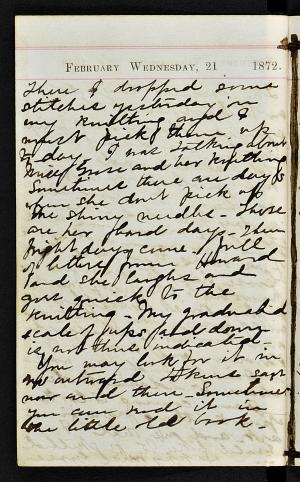 February Wednesday, 21 1872.
There I dropped some
stitches yesterday in
my knitting and I
must pick them up
to day. I was talking about
Grose and her knitting
Sometimes there are days
when she don't pick up
the shiny needles - Those
are her hard days - Then
bright days come full
of letters from Howard
and she laughs and
goes quick to the
knitting - My graduated
scale of ups and downs
is not thus indicated.
You may look for it in
my outward, 
now and then - Sometimes
you can find it in
the little old book -